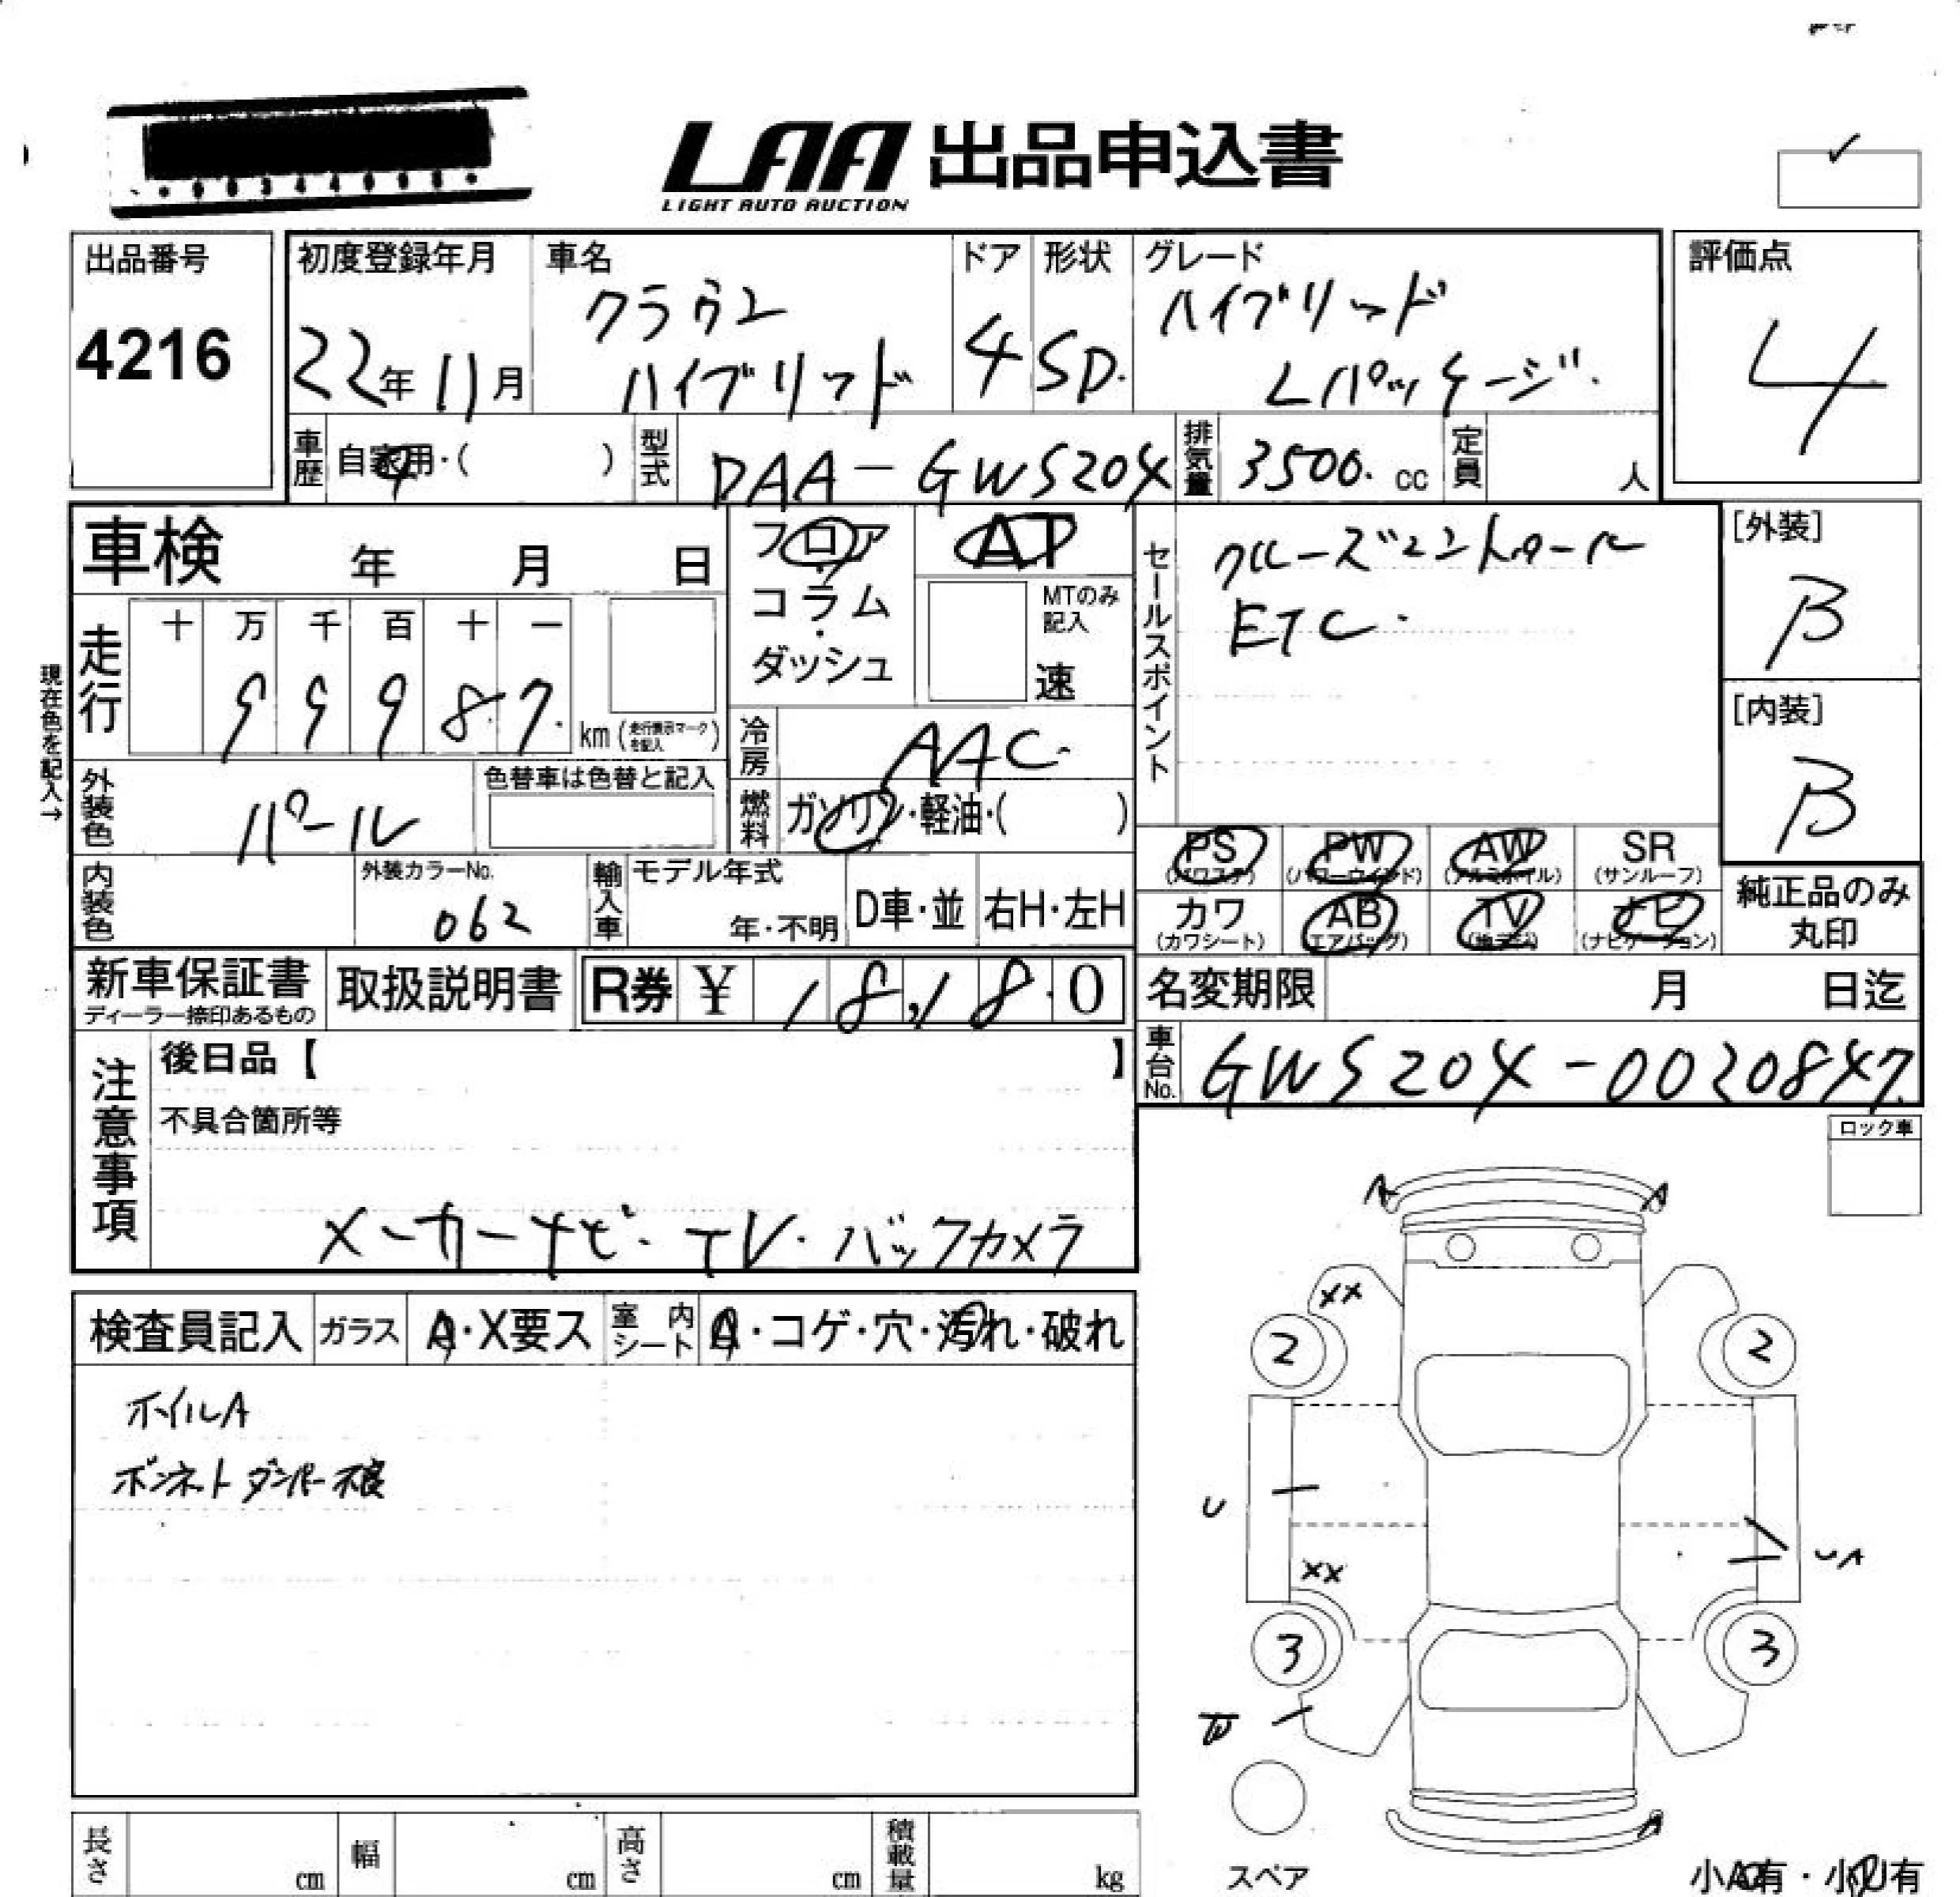 LAA 出品申込書
LIGHT AUTO AUCTION
出品番号
4216
初度登録年月
22年11月
車名
クラウン
ハイブリッド
ドア
4
形状
SD.
グレード
ハイブリッド
Lパッケージ.
評価点
4
車歴 自家用・( )
型式 DAA-GWS204
排気量 3500. cc
定員 人
車検 年 月 日
フロア・コラム・ダッシュ
AT
MTのみ記入
速
セールスポイント
クルーズコントロール
ETC.
[外装]
B
[内装]
B
現在色を記入→
走行
十 万 千 百 十 一
9 9 9 8 7. km (走行表示マークを記入)
冷房 AAC.
外装色 パール
色替車は色替と記入
燃料 ガソリン・軽油・( )
PS (パワステ)
PW (パワーウインド)
AW (アルミホイル)
SR (サンルーフ)
内装色
外装カラーNo.
062
輸入車
モデル年式
年・不明
D車・並
右H・左H
カワ (カワシート)
AB (エアバッグ)
TV (地デジ)
ナビ (ナビゲーション)
純正品のみ丸印
新車保証書
ディーラー捺印あるもの
取扱説明書
R券 ¥ 18,180
名変期限 月 日迄
車台No. GWS204-0020847.
注意事項
後日品【 】
不具合箇所等
メーカーナビ・TV・バックカメラ
ロック車
検査員記入
ガラス A・X要ス
室内シート A・コゲ・穴・汚れ・破れ
ホイルA
ボンネットダンパー不良
A A
XX
2 2
U
UA
XX
3 3
A
スペア
小A有・小U有
長さ cm
幅 cm
高さ cm
積載量 kg